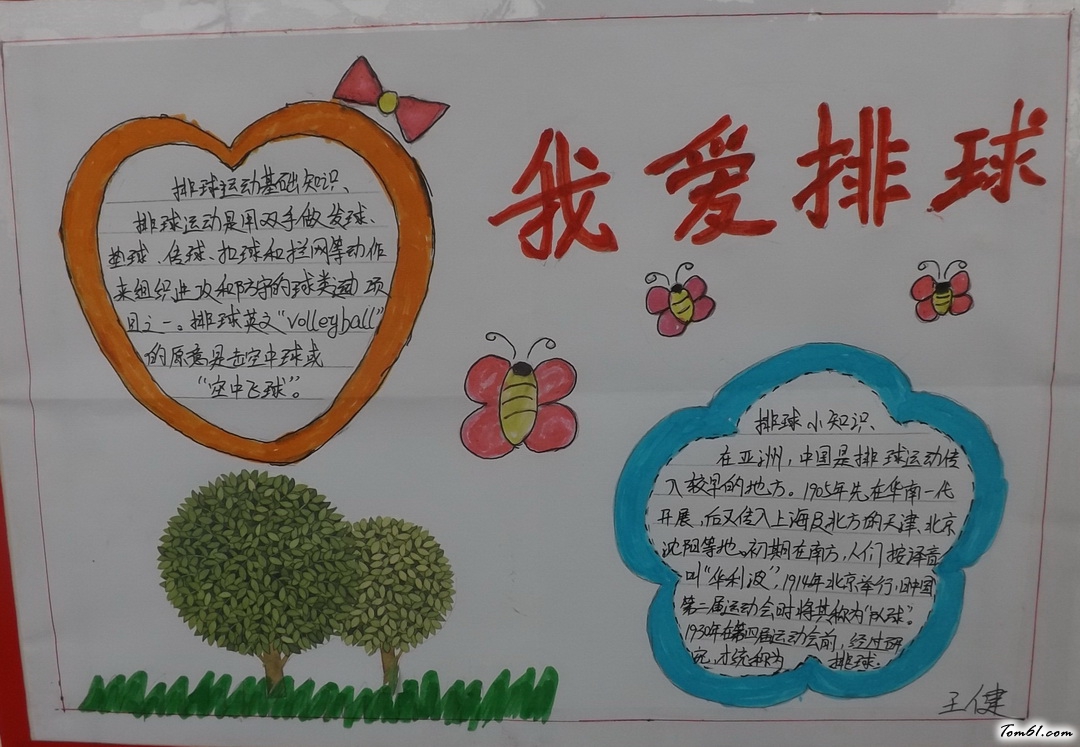 我爱排球
排球运动基础知识、
排球运动是用双手做发球、
垫球、传球、扣球和拦网等动作
来组织进攻和防守的球类运动项
目之一。排球英文“volleyball”
的原意是击空中球或
“空中飞球”。
排球小知识、
在亚洲，中国是排球运动传
入较早的地方。1905年先在华南一代
开展，后又传入上海及北方的天津、北京
沈阳等地。初期在南方，人们按译音
叫“华利波”，1914年北京举行旧中国
第二届运动会时将其称为“队球”。
1930年在第四届运动会前，经过研
究，才统称为排球.
王健
Tom61.com